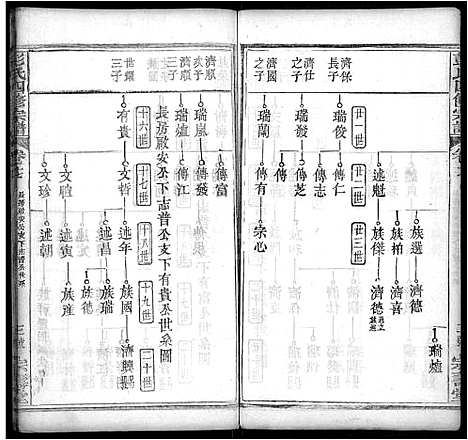 彭氏四修宗譜
述魁
族傑
族柏
族選
濟德
濟喜
濟德
瑞爐
廿一世
廿二世
廿三世
濟保
長子
瑞俊
傳仁
濟仕
之子
瑞發
傳志
傳有
濟國
之子
瑞蘭
傳有
宗心
濟順
次子
瑞嵐
傳發
傳富
濟順
三子
瑞爐
傳江
長房啟安公支下志普公支下有貴公世系圖
十六世
十七世
十八世
十九世
二十世
世耀
三子
有貴
文哲
述年
族國
濟職
述昌
族瑞
族德
文暄
述寅
族產
文珍
述朝
彭氏四修宗譜